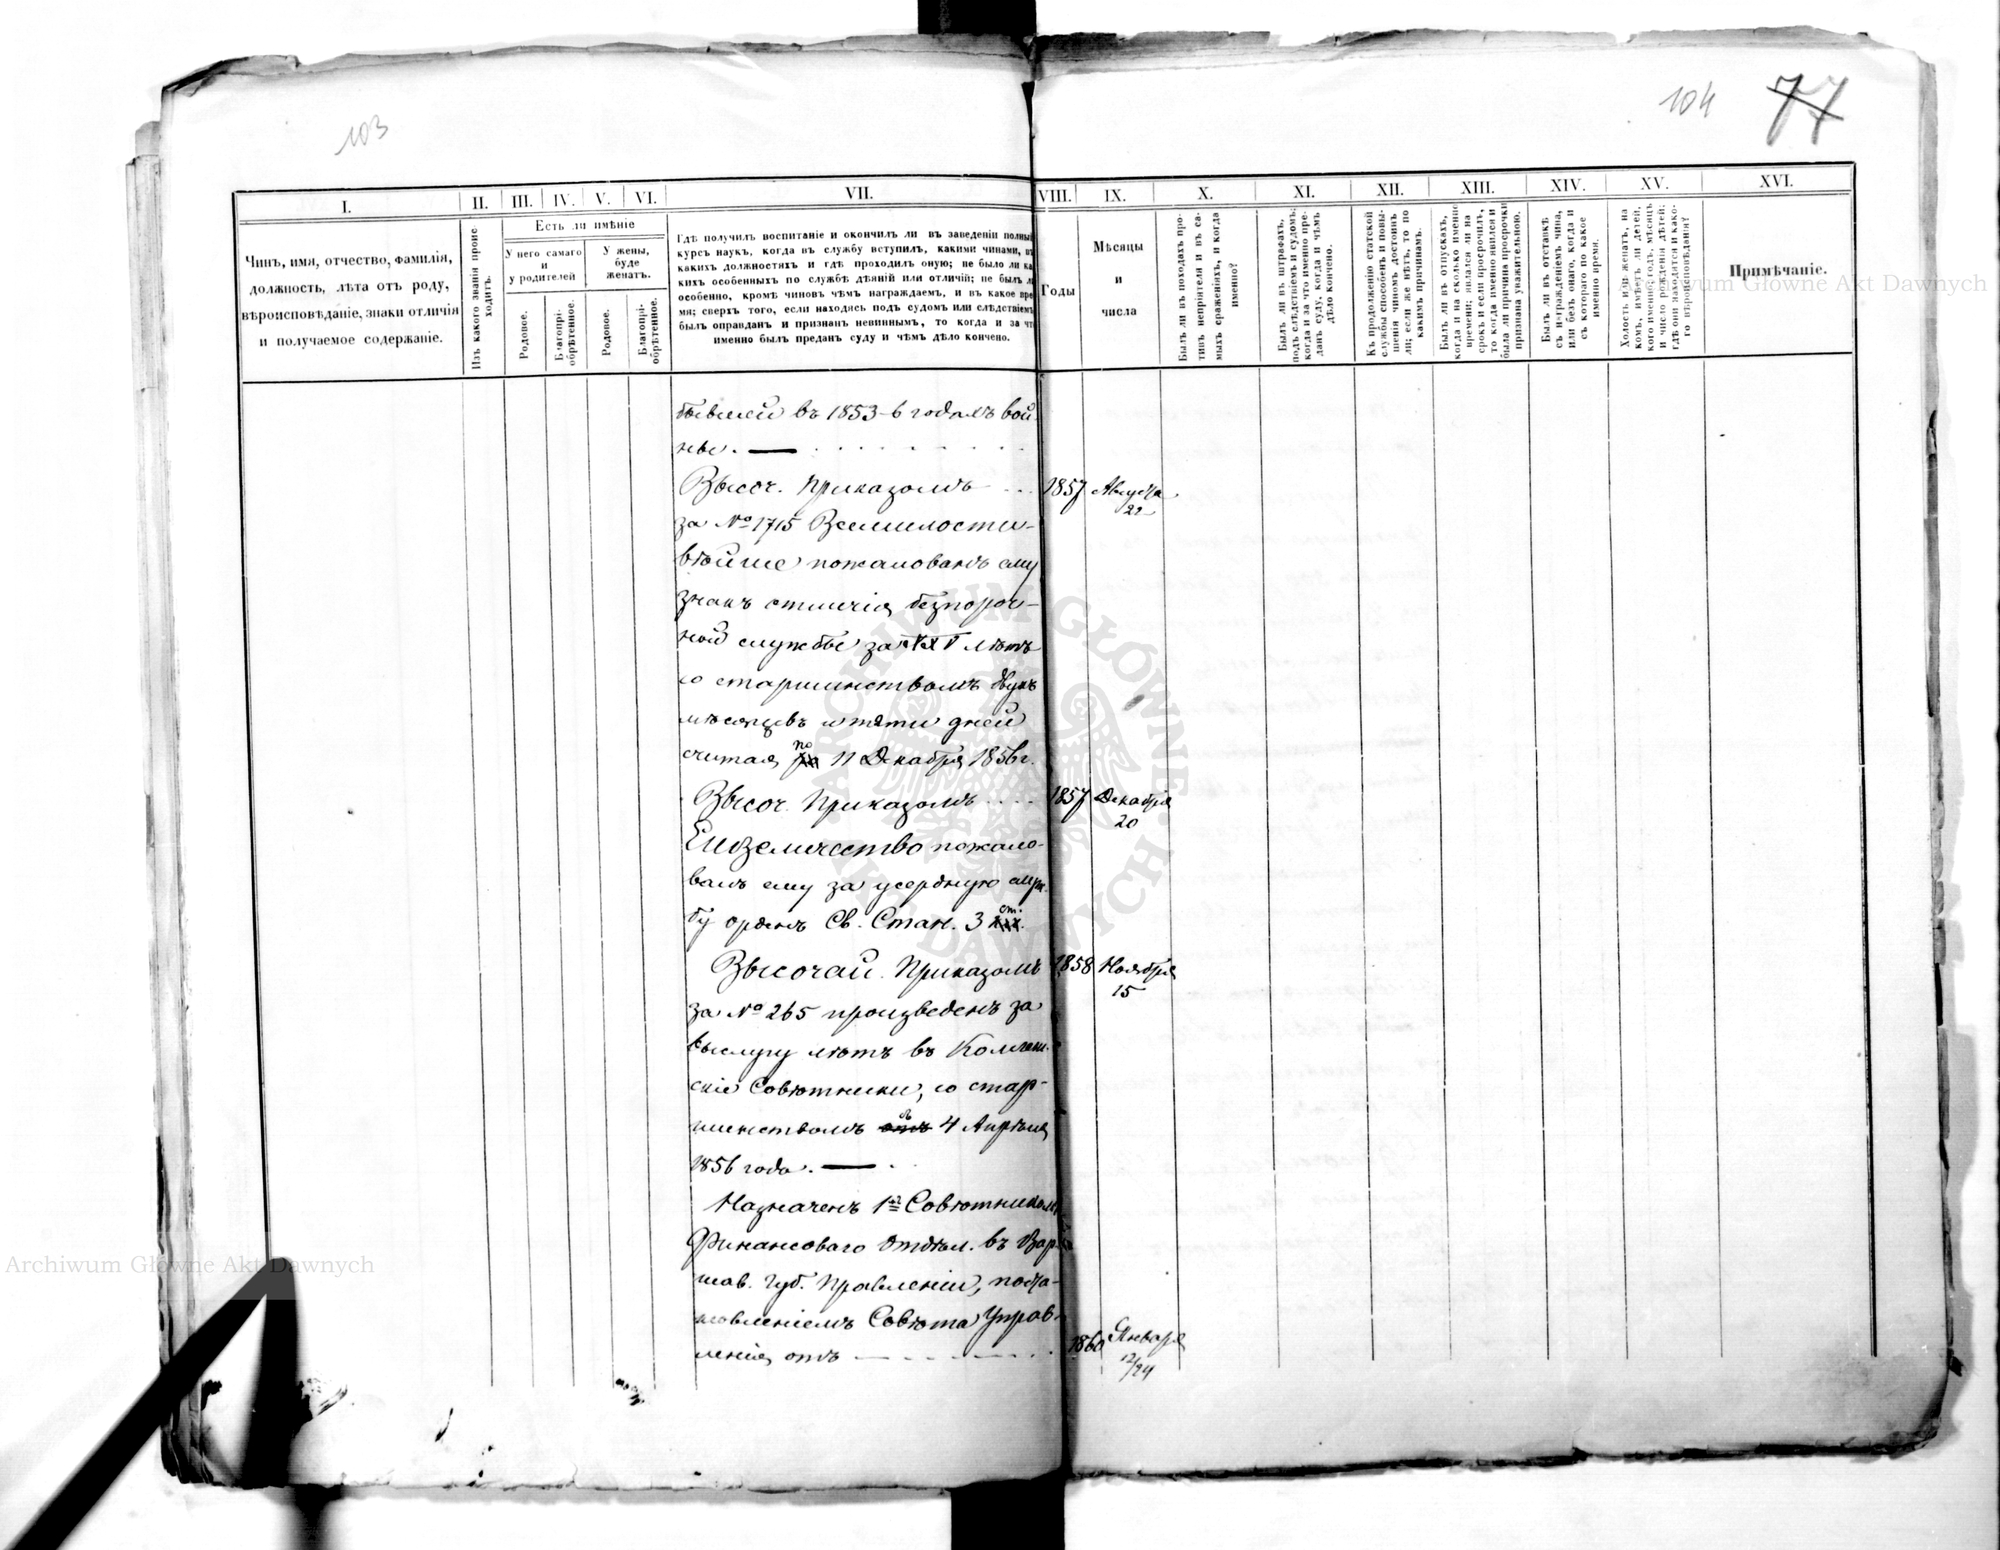 103
104
77
I.
II.
III.
IV.
V.
VI.
VII.
VIII.
IX.
X.
XI.
XII.
XIII.
XIV.
XV.
XVI.
Чинъ, имя, отчество, фамилія,
должность, лѣта отъ роду,
вѣроисповѣданіе, знаки отличія
и получаемое содержаніе.
Изъ какого званія проис-
ходитъ.
Есть ли имѣніе
У него самаго
и
у родителей
У жены,
буде
женатъ.
Родовое.
Благопрі-
обрѣтенное.
Родовое.
Благопрі-
обрѣтенное.
Гдѣ получилъ воспитаніе и окончилъ ли въ заведеніи полный
курсъ наукъ, когда въ службу вступилъ, какими чинами, въ
какихъ должностяхъ и гдѣ проходилъ оную; не было ли ка
кихъ особенныхъ по службѣ дѣяній или отличій; не былъ л
особенно, кромѣ чиновъ чѣмъ награждаемъ, и въ какое вре
мя; сверхъ того, если находясь подъ судомъ или слѣдствіемъ
былъ оправданъ и признанъ невиннымъ, то когда и за чт
именно былъ преданъ суду и чѣмъ дѣло кончено.
Годы
Мѣсяцы
и
числа
Былъ ли въ походахъ про-
тивъ непріятеля и въ са-
мыхъ сраженіяхъ, и когда
именно?
Былъ ли въ штрафахъ,
подъ слѣдствіемъ и судомъ;
когда и за что именно пре-
данъ суду, когда и чѣмъ
дѣло кончено.
Къ продолженію статской
службы способенъ и повы-
шенія чиномъ достоинъ
ли; если же нѣтъ, то по
какимъ причинамъ.
Былъ ли въ отпускахъ,
когда и на сколько именно
времени; явился ли на
срокъ и если просрочилъ,
то когда именно явился и
была ли причина просрочки
признана уважительною.
Былъ ли въ отставкѣ
съ награжденіемъ чина,
или безъ онаго, когда и
съ котораго по какое
именно время.
Холостъ или женатъ, на
комъ, имѣетъ ли дѣтей,
кого именно; годъ, мѣсяцъ
и число рожденія дѣтей;
гдѣ они находятся и како-
го вѣроисповѣданія?
Примѣчаніе.
бывшей въ 1853-6 годахъ вой-
нѣ.
Высоч. Приказомъ 1857 Августа
22
за № 1715 Всемилости-
вѣйше пожалованъ ему
знакъ отличія безпороч-
ной службы за XXV лѣтъ
со старшинствомъ двухъ
мѣсяцевъ и пяти дней
считая по 11 Декабря 1856 г.
Высоч. Приказомъ 1857 Декабря
20
пожало-
валъ ему за усердную служ-
бу орденъ Св. Стан. 3 ст.
Высочай. Приказомъ 1858 Ноября
15
за № 265 произведенъ за
выслугу лѣтъ въ Коллеж-
скіе Совѣтники, со стар-
шинствомъ съ 4 Апрѣля
1856 года.
Назначенъ 1мъ Совѣтникомъ
Финансоваго Отдѣл. въ Вар-
шав. Губ. Правленіи, поста-
новленіемъ Совѣта Управ-
ленія отъ 1860 Января
12/24
Archiwum Główne Akt Dawnych
Archiwum Główne Akt Dawnych
ARCHIWUM GŁÓWNE AKT DAWNYCH